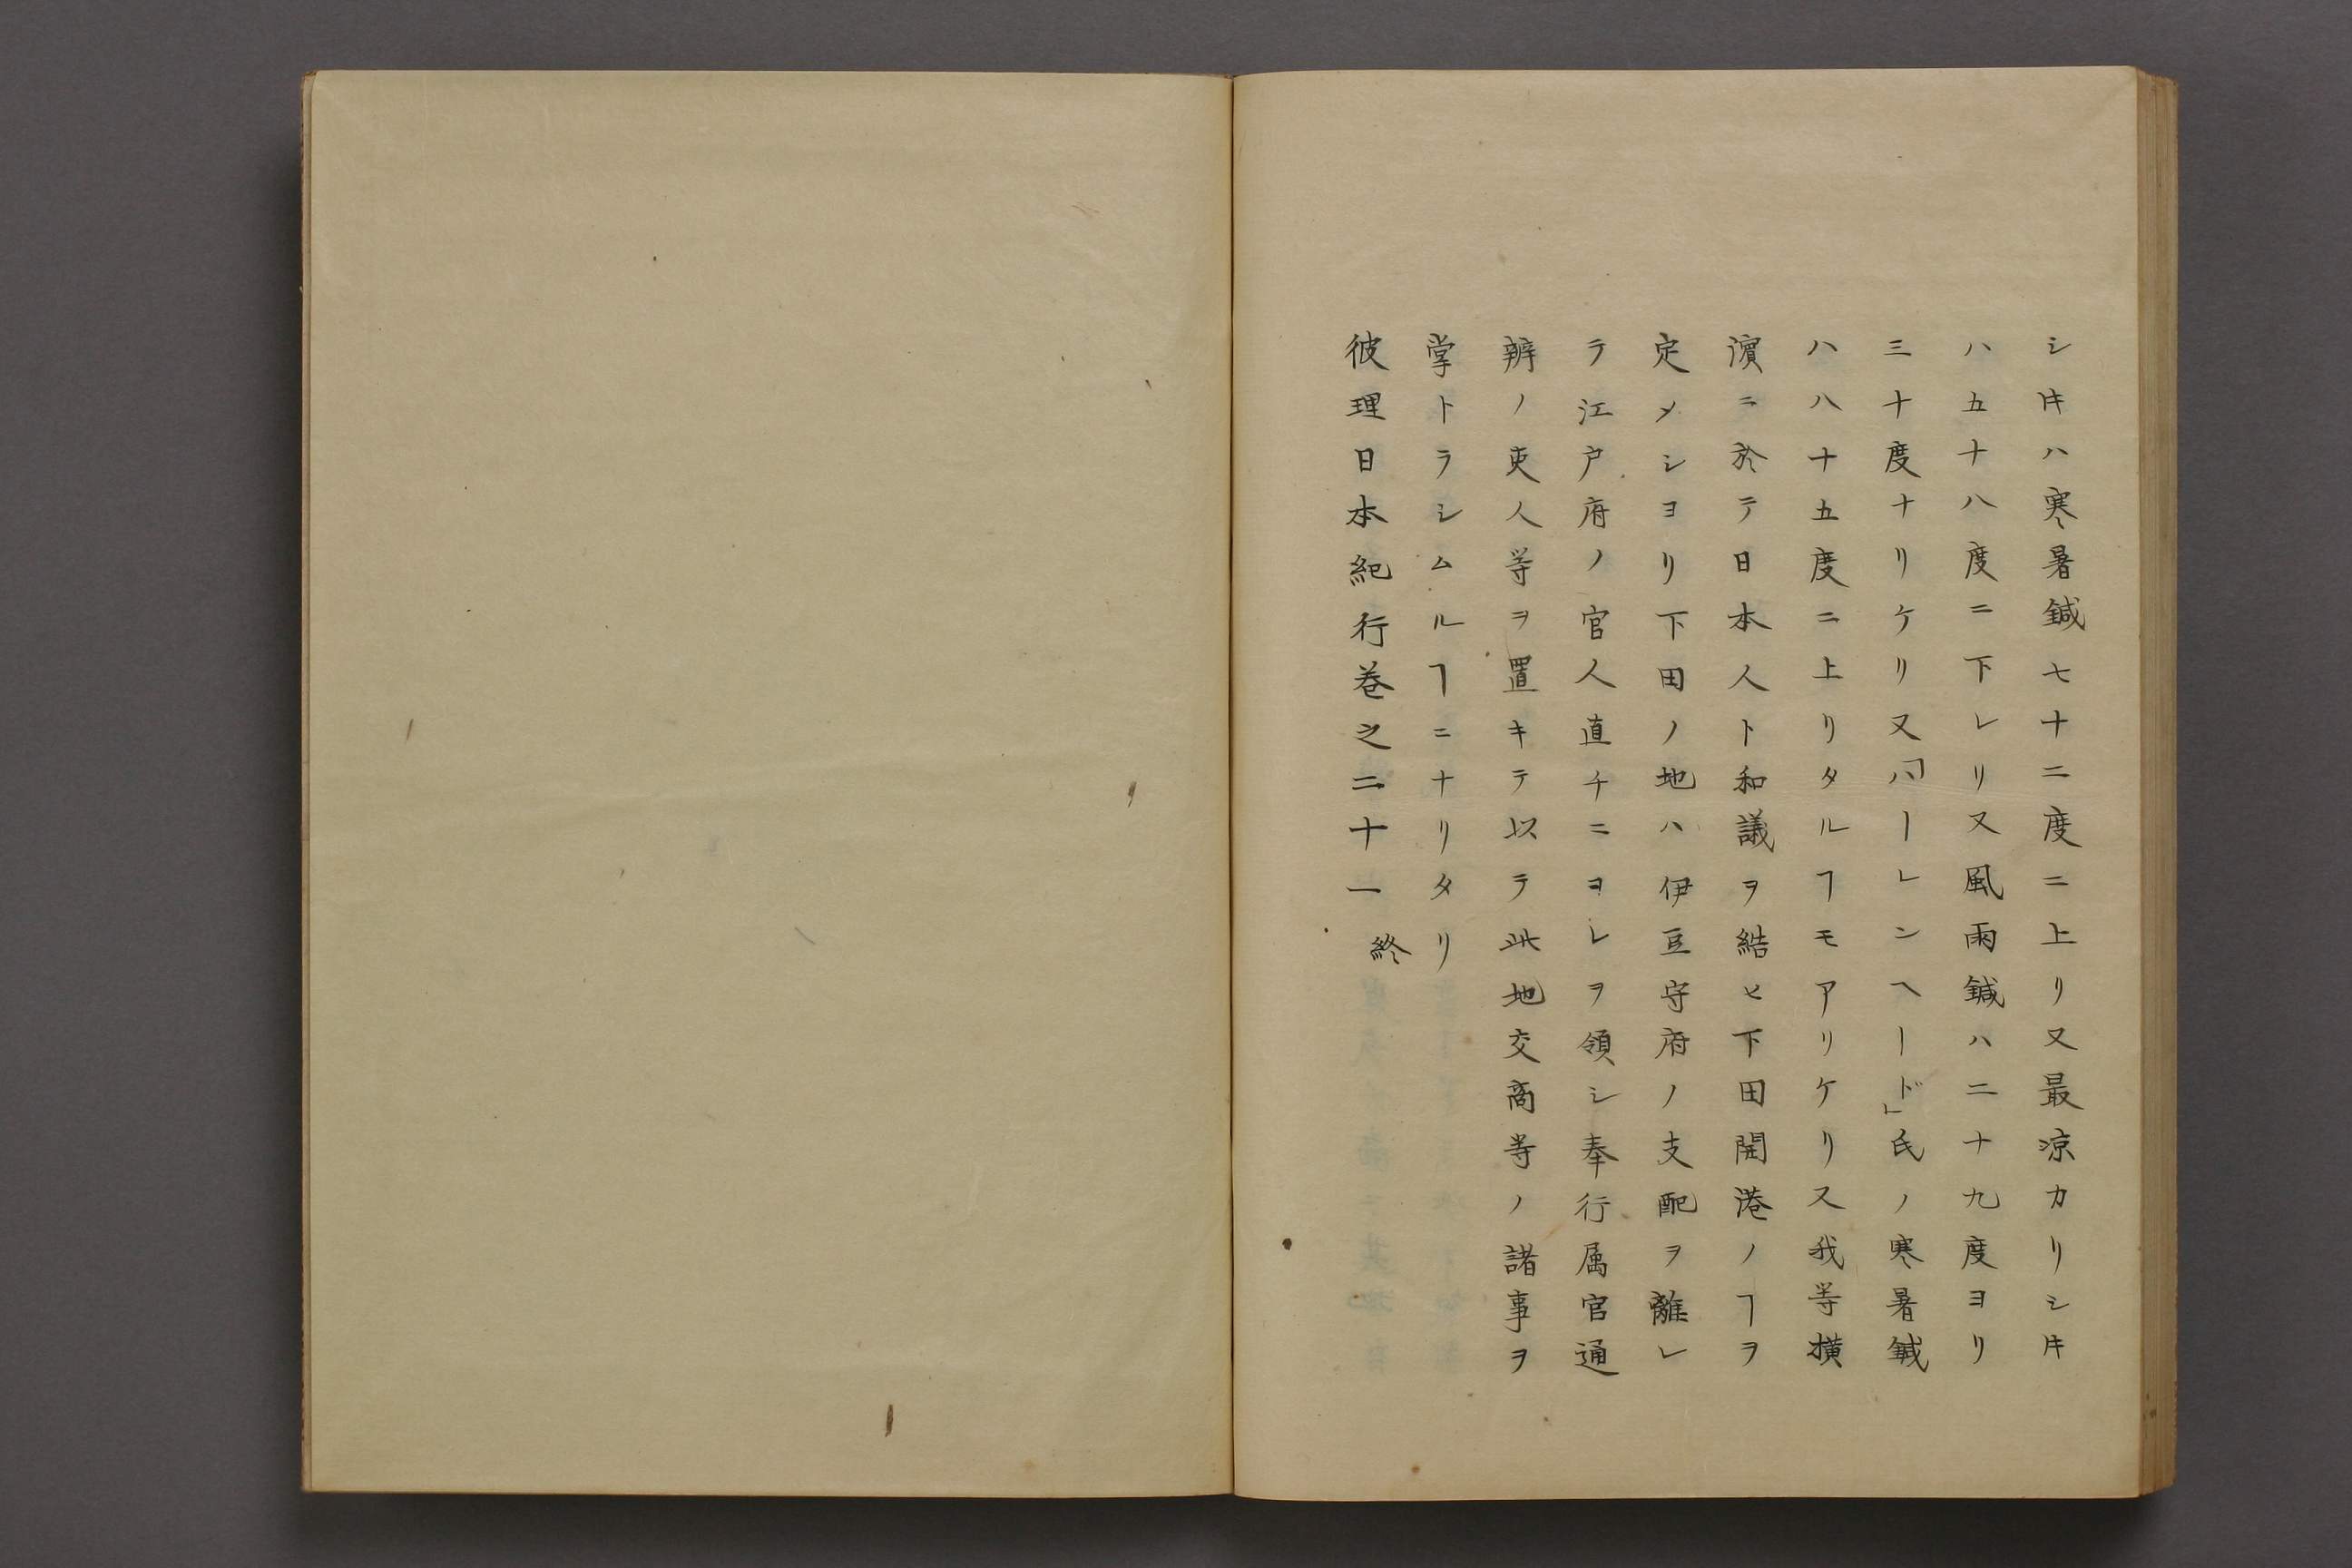 シ𪜈ハ寒暑鍼七十二度ニ上リ又最凉カリシ𪜈
ハ五十八度ニ下レリ又風雨鍼ハ二十九度ヨリ
三十度ナリケリ又「ハーレンヘード」氏ノ寒暑鍼
ハ八十五度ニ上リタルヿモアリケリ又我等横
濱ニ於テ日本人ト和議ヲ結ヒ下田開港ノヿヲ
定メシヨリ下田ノ地ハ伊豆守府ノ支配ヲ離レ
テ江戸府ノ官人直チニヨレヲ領シ奉行属官通
辨ノ吏人等ヲ置キテ以テ此地交商等ノ諸事ヲ
掌トラシムルヿニナリタリ
彼理日本紀行巻之二十一 終